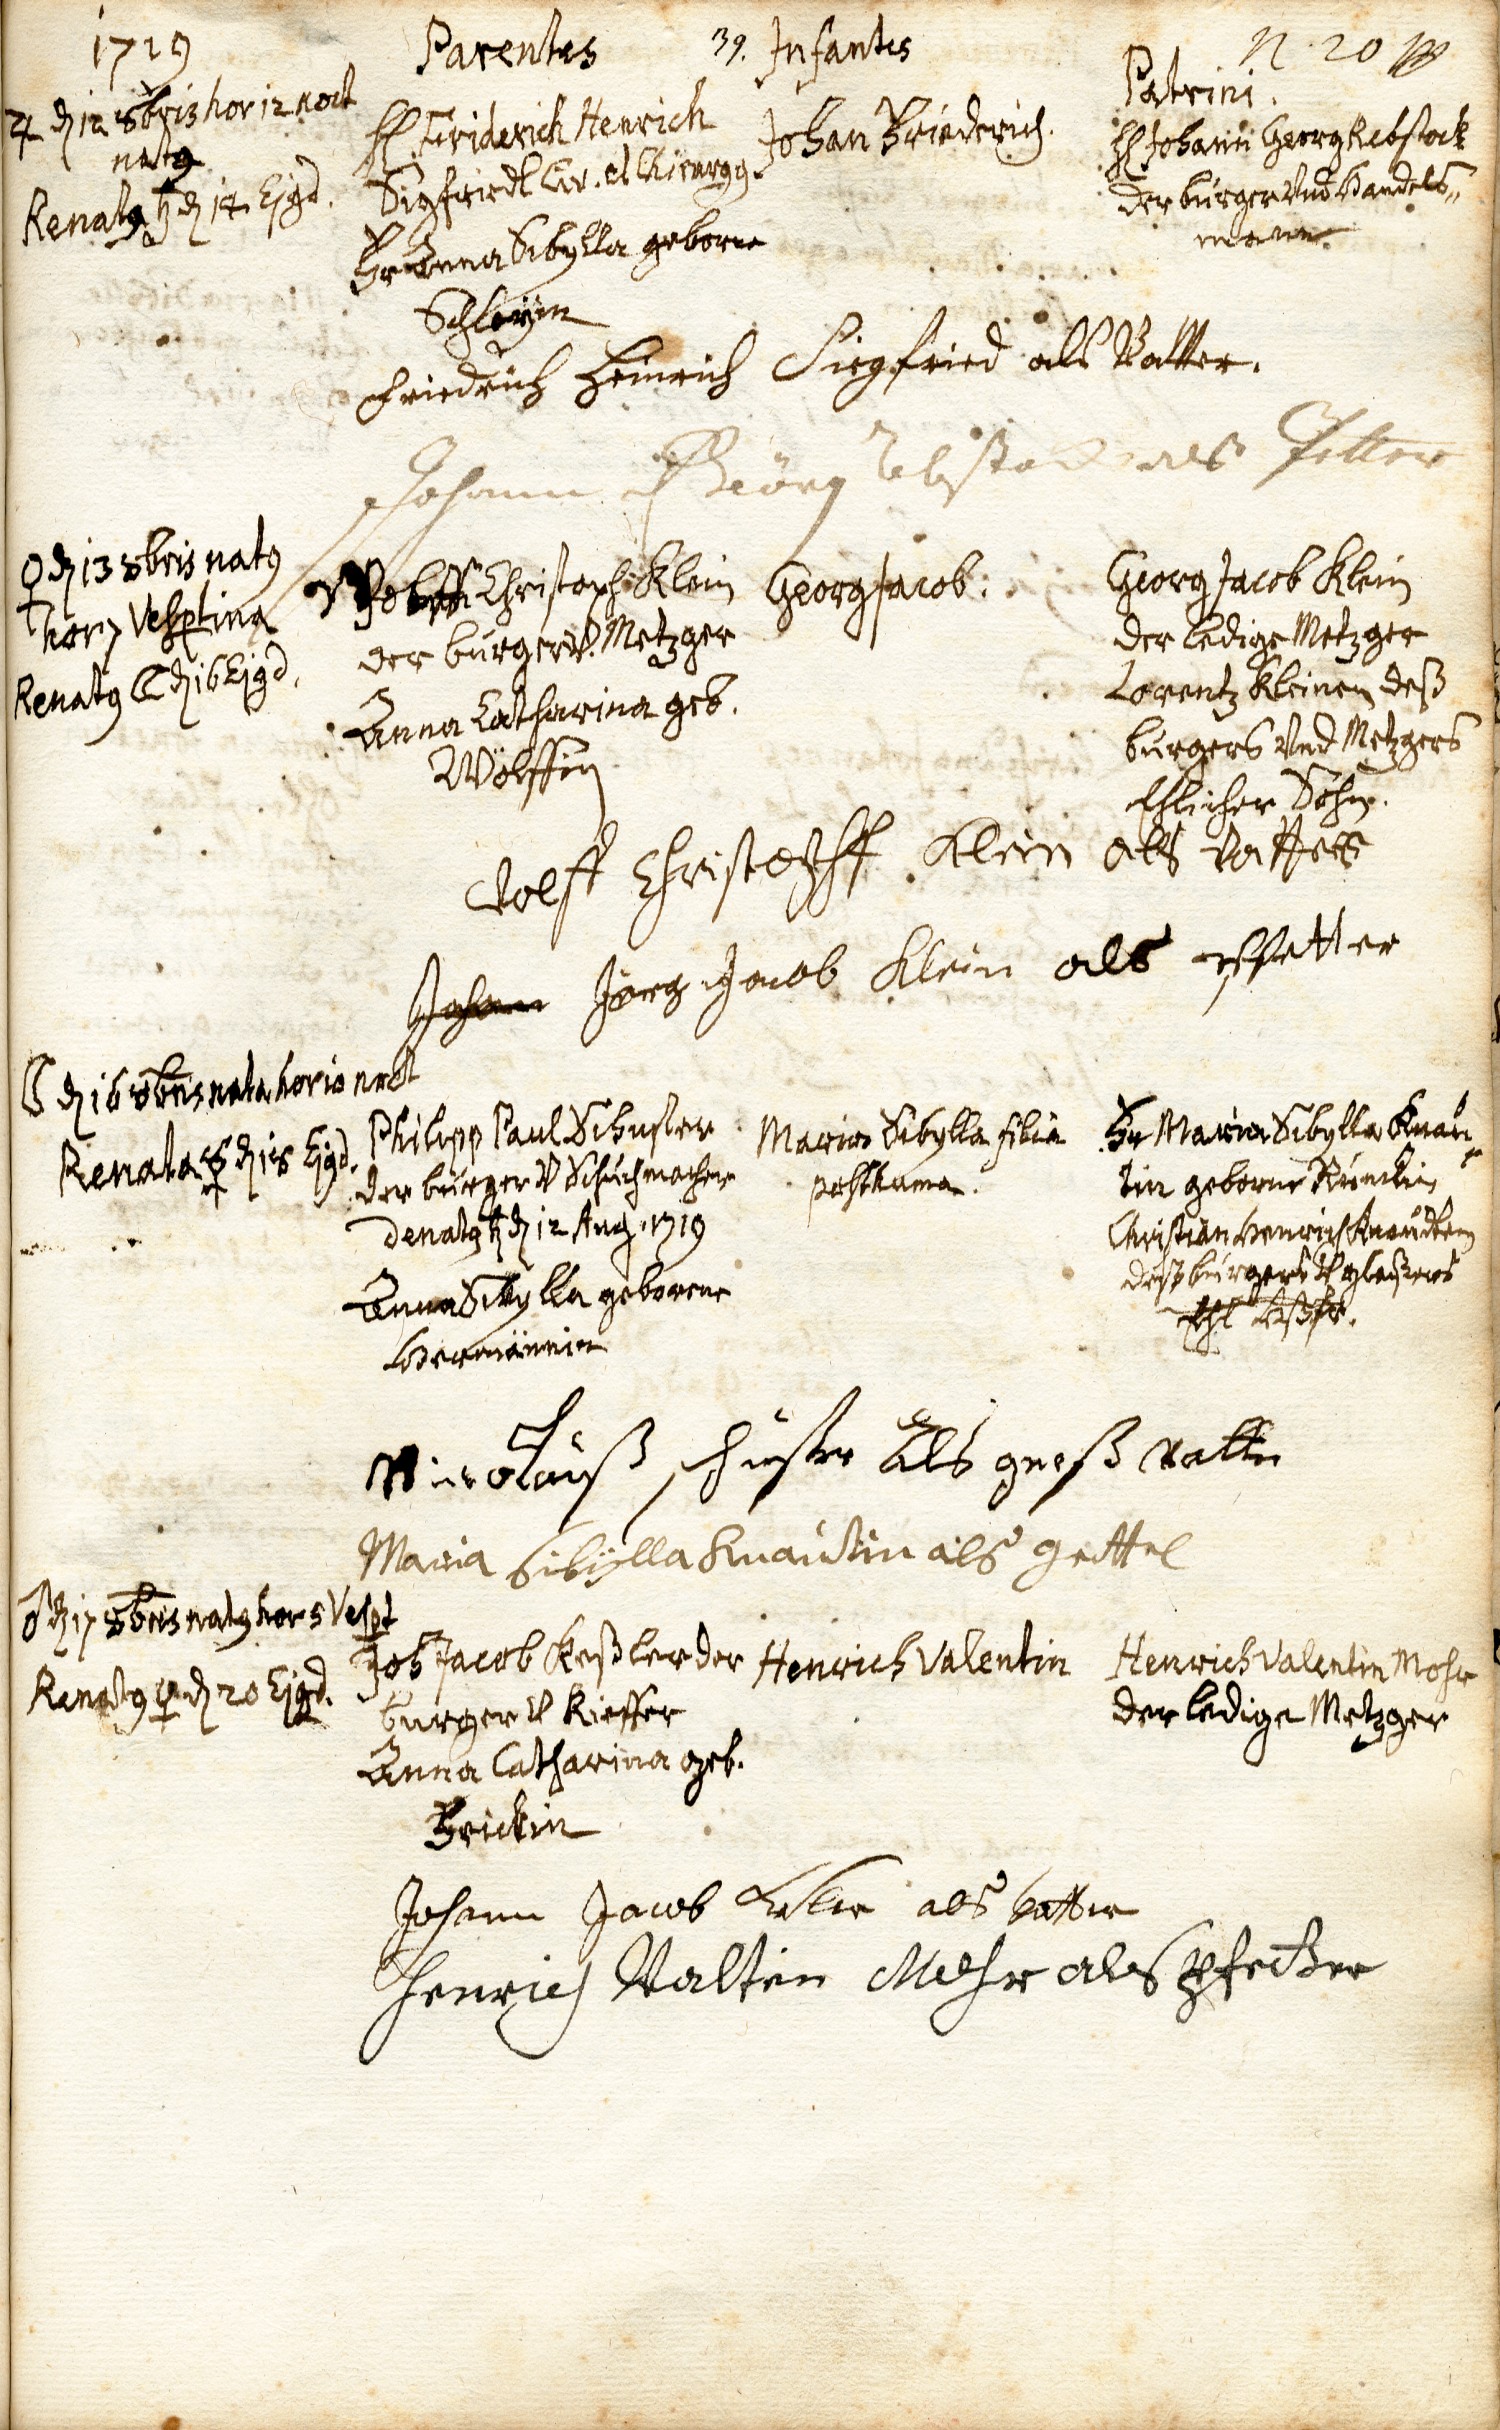 1719
Parentes
39. Infantes
N. 20
Patrini.
♃ d 12 8bris hor 12 noct
natg
Renatg ♄ d 14 Ejgd.
H Friderich Henrich
Sigfriedt Civ. et Chirurgg.
Fr Anna Sibylla geborne
Johan Friederich.
H Johann Georg Rebstock
der burger Und Handels„
mann.
Friedrich Heinrich Siegfried als Vatter.
Johann Geörg Rebstock als Petter
♀ d 13 8bris natg
hor 7 Vespertina
Renatg ☾ d 16 Ejgd.
Wolff Christoph Klein
der burger V. Metzger
Anna Catharina geb.
Wölffin
Georg Jacob.
Georg Jacob Klein
der ledige Metzger
Lorentz Kleinen deß
burgers Und Metzgers
Ehlicher Sohn.
Volff Christophff Klein als Vatter
Johann Jörg Jacob Klein als pfetter
☾ d 16 8bris nata hor 10 noct
Renata ☿ d 18 Ejgd.
Philipp Paul Schuster
der burger V Schuhmacher
denatg ♄ d 12 Aug. 1719
Anna Sibylla geborene
Hermännin
Maria Sibylla filia
posthuma.
Fr Maria Sibylla Knau„
tin geborne
Christian Henrich Knaudten
deß burgers V glaßers
Ehl.
Nicolauß Schuster als groß vatter
Maria Sibÿlla Knaudin als gettel
♂ d 17 8bris natg hor 5 Vespt
Renatg ♀ d 20 Ejgd.
Joh Jacob Keßler der
burger V Kieffer
Anna Catharina geb.
Frickin
Henrich Valentin
Henrich Valentin Mohr
der ledige Metzger
Johann Jacob Keßler als Vatter
Henrich Valtin Mohr als Pfetter